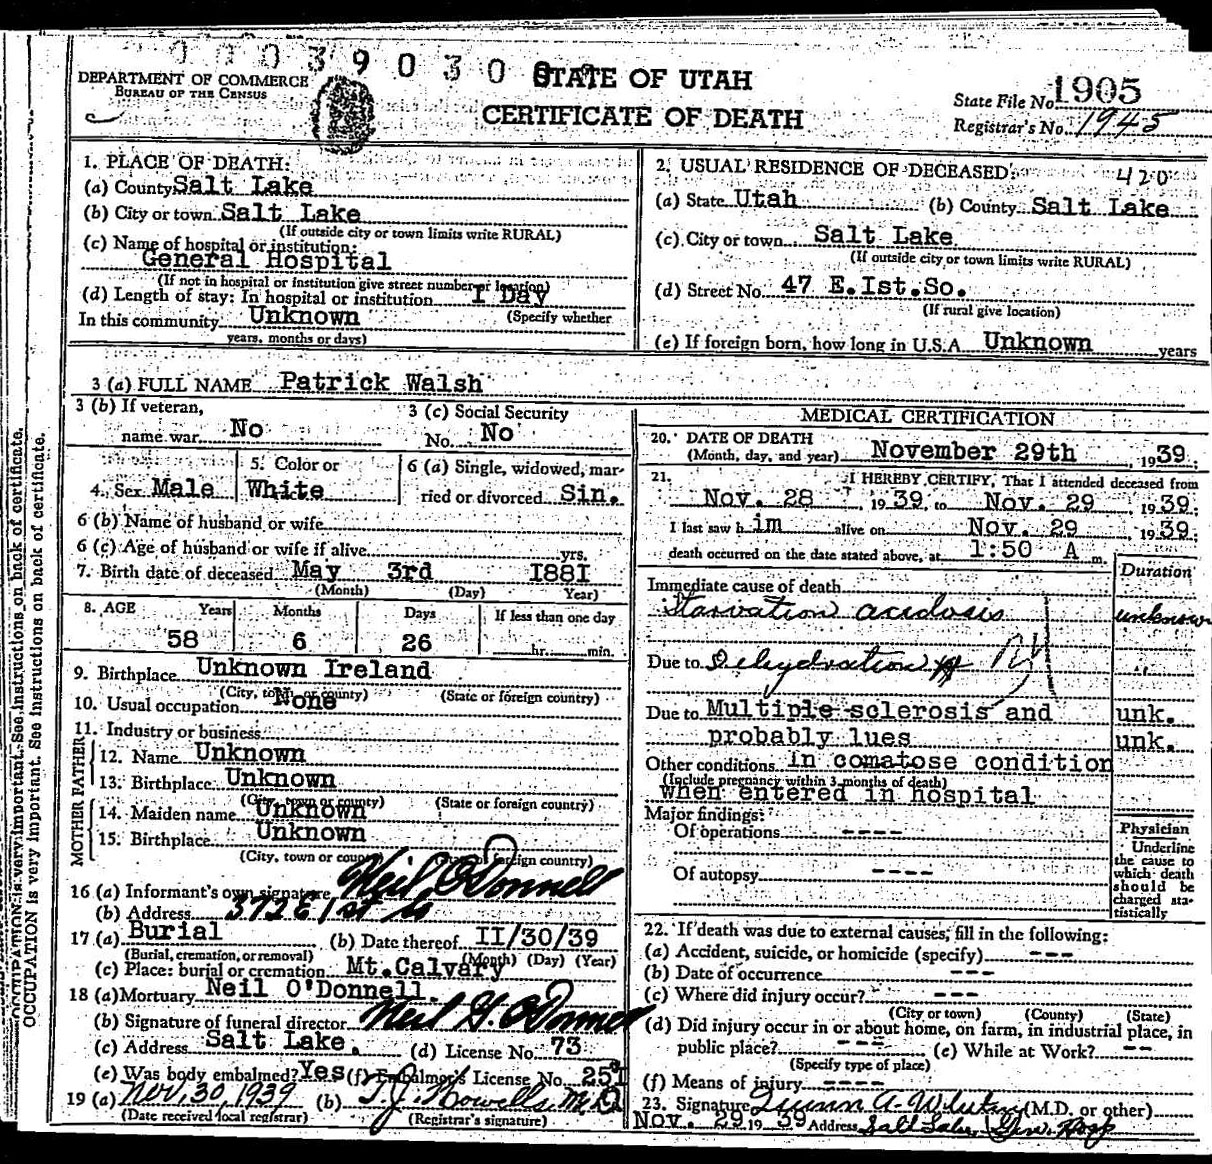 0003903008
DEPARTMENT OF COMMERCE
BUREAU OF THE CENSUS
STATE OF UTAH
CERTIFICATE OF DEATH
State File No. 1905
Registrar's No. 1945
OCCUPATION is very important. See instructions on back of certificate.
1. PLACE OF DEATH:
(a) County Salt Lake
(b) City or town Salt Lake
(If outside city or town limits write RURAL)
(c) Name of hospital or institution:
General Hospital
(If not in hospital or institution give street number or location)
(d) Length of stay: In hospital or institution I Day
In this community Unknown (Specify whether
years, months or days)
2. USUAL RESIDENCE OF DECEASED: 420
(a) State Utah (b) County Salt Lake
(c) City or town Salt Lake
(If outside city or town limits write RURAL)
(d) Street No. 47 E.Ist.So.
(If rural give location)
(e) If foreign born, how long in U.S.A. Unknown years
3 (a) FULL NAME Patrick Walsh
3 (b) If veteran,
name war No
3 (c) Social Security
No. No
4. Sex Male
5. Color or
White
6 (a) Single, widowed, mar-
ried or divorced Sin.
6 (b) Name of husband or wife
6 (c) Age of husband or wife if alive yrs.
7. Birth date of deceased May 3rd I88I
(Month) (Day) Year)
8. AGE Years Months Days If less than one day
58 6 26 hr. min.
9. Birthplace Unknown Ireland
(City, town or county) (State or foreign country)
10. Usual occupation None
11. Industry or business
FATHER
12. Name Unknown
13. Birthplace Unknown
(City, town or county) (State or foreign country)
MOTHER
14. Maiden name Unknown
15. Birthplace Unknown
(City, town or county) (State or foreign country)
16 (a) Informant's own signature Neil O'Donnell
(b) Address 372 E 1st So
17 (a) Burial (b) Date thereof II/30/39
(Burial, cremation, or removal) (Month) (Day) (Year)
(c) Place: burial or cremation Mt.Calvary
18 (a) Mortuary Neil O'Donnell.
(b) Signature of funeral director Neil G. O'Donnell
(c) Address Salt Lake. (d) License No. 73
(e) Was body embalmed? Yes (f) Embalmer's License No. 251
19 (a) Nov. 30, 1939 (b) T.J. Howells M.D.
(Date received local registrar) (Registrar's signature)
MEDICAL CERTIFICATION
20. DATE OF DEATH
(Month, day, and year) November 29th, 1939.
21. I HEREBY CERTIFY, That I attended deceased from
Nov. 28, 1939, to Nov. 29, 1939;
I last saw him alive on Nov. 29, 1939;
death occurred on the date stated above, at 1:50 A m.
Duration
Immediate cause of death
Starvation acidosis unknown
Due to Dehydration "
Due to Multiple sclerosis and unk.
probably lues unk.
Other conditions In comatose condition
(Include pregnancy within 3 months of death)
when entered in hospital
Major findings:
Of operations ----
Of autopsy ----
Physician
Underline
the cause to
which death
should be
charged sta-
tistically
22. If death was due to external causes, fill in the following:
(a) Accident, suicide, or homicide (specify) ---
(b) Date of occurrence ---
(c) Where did injury occur? ---
(City or town) (County) (State)
(d) Did injury occur in or about home, on farm, in industrial place, in
public place? --- (e) While at Work? --
(Specify type of place)
(f) Means of injury ----
23. Signature Quinn A. (M.D. or other)
Nov. 29 19 39 Address Salt Lake, Gen. Hosp